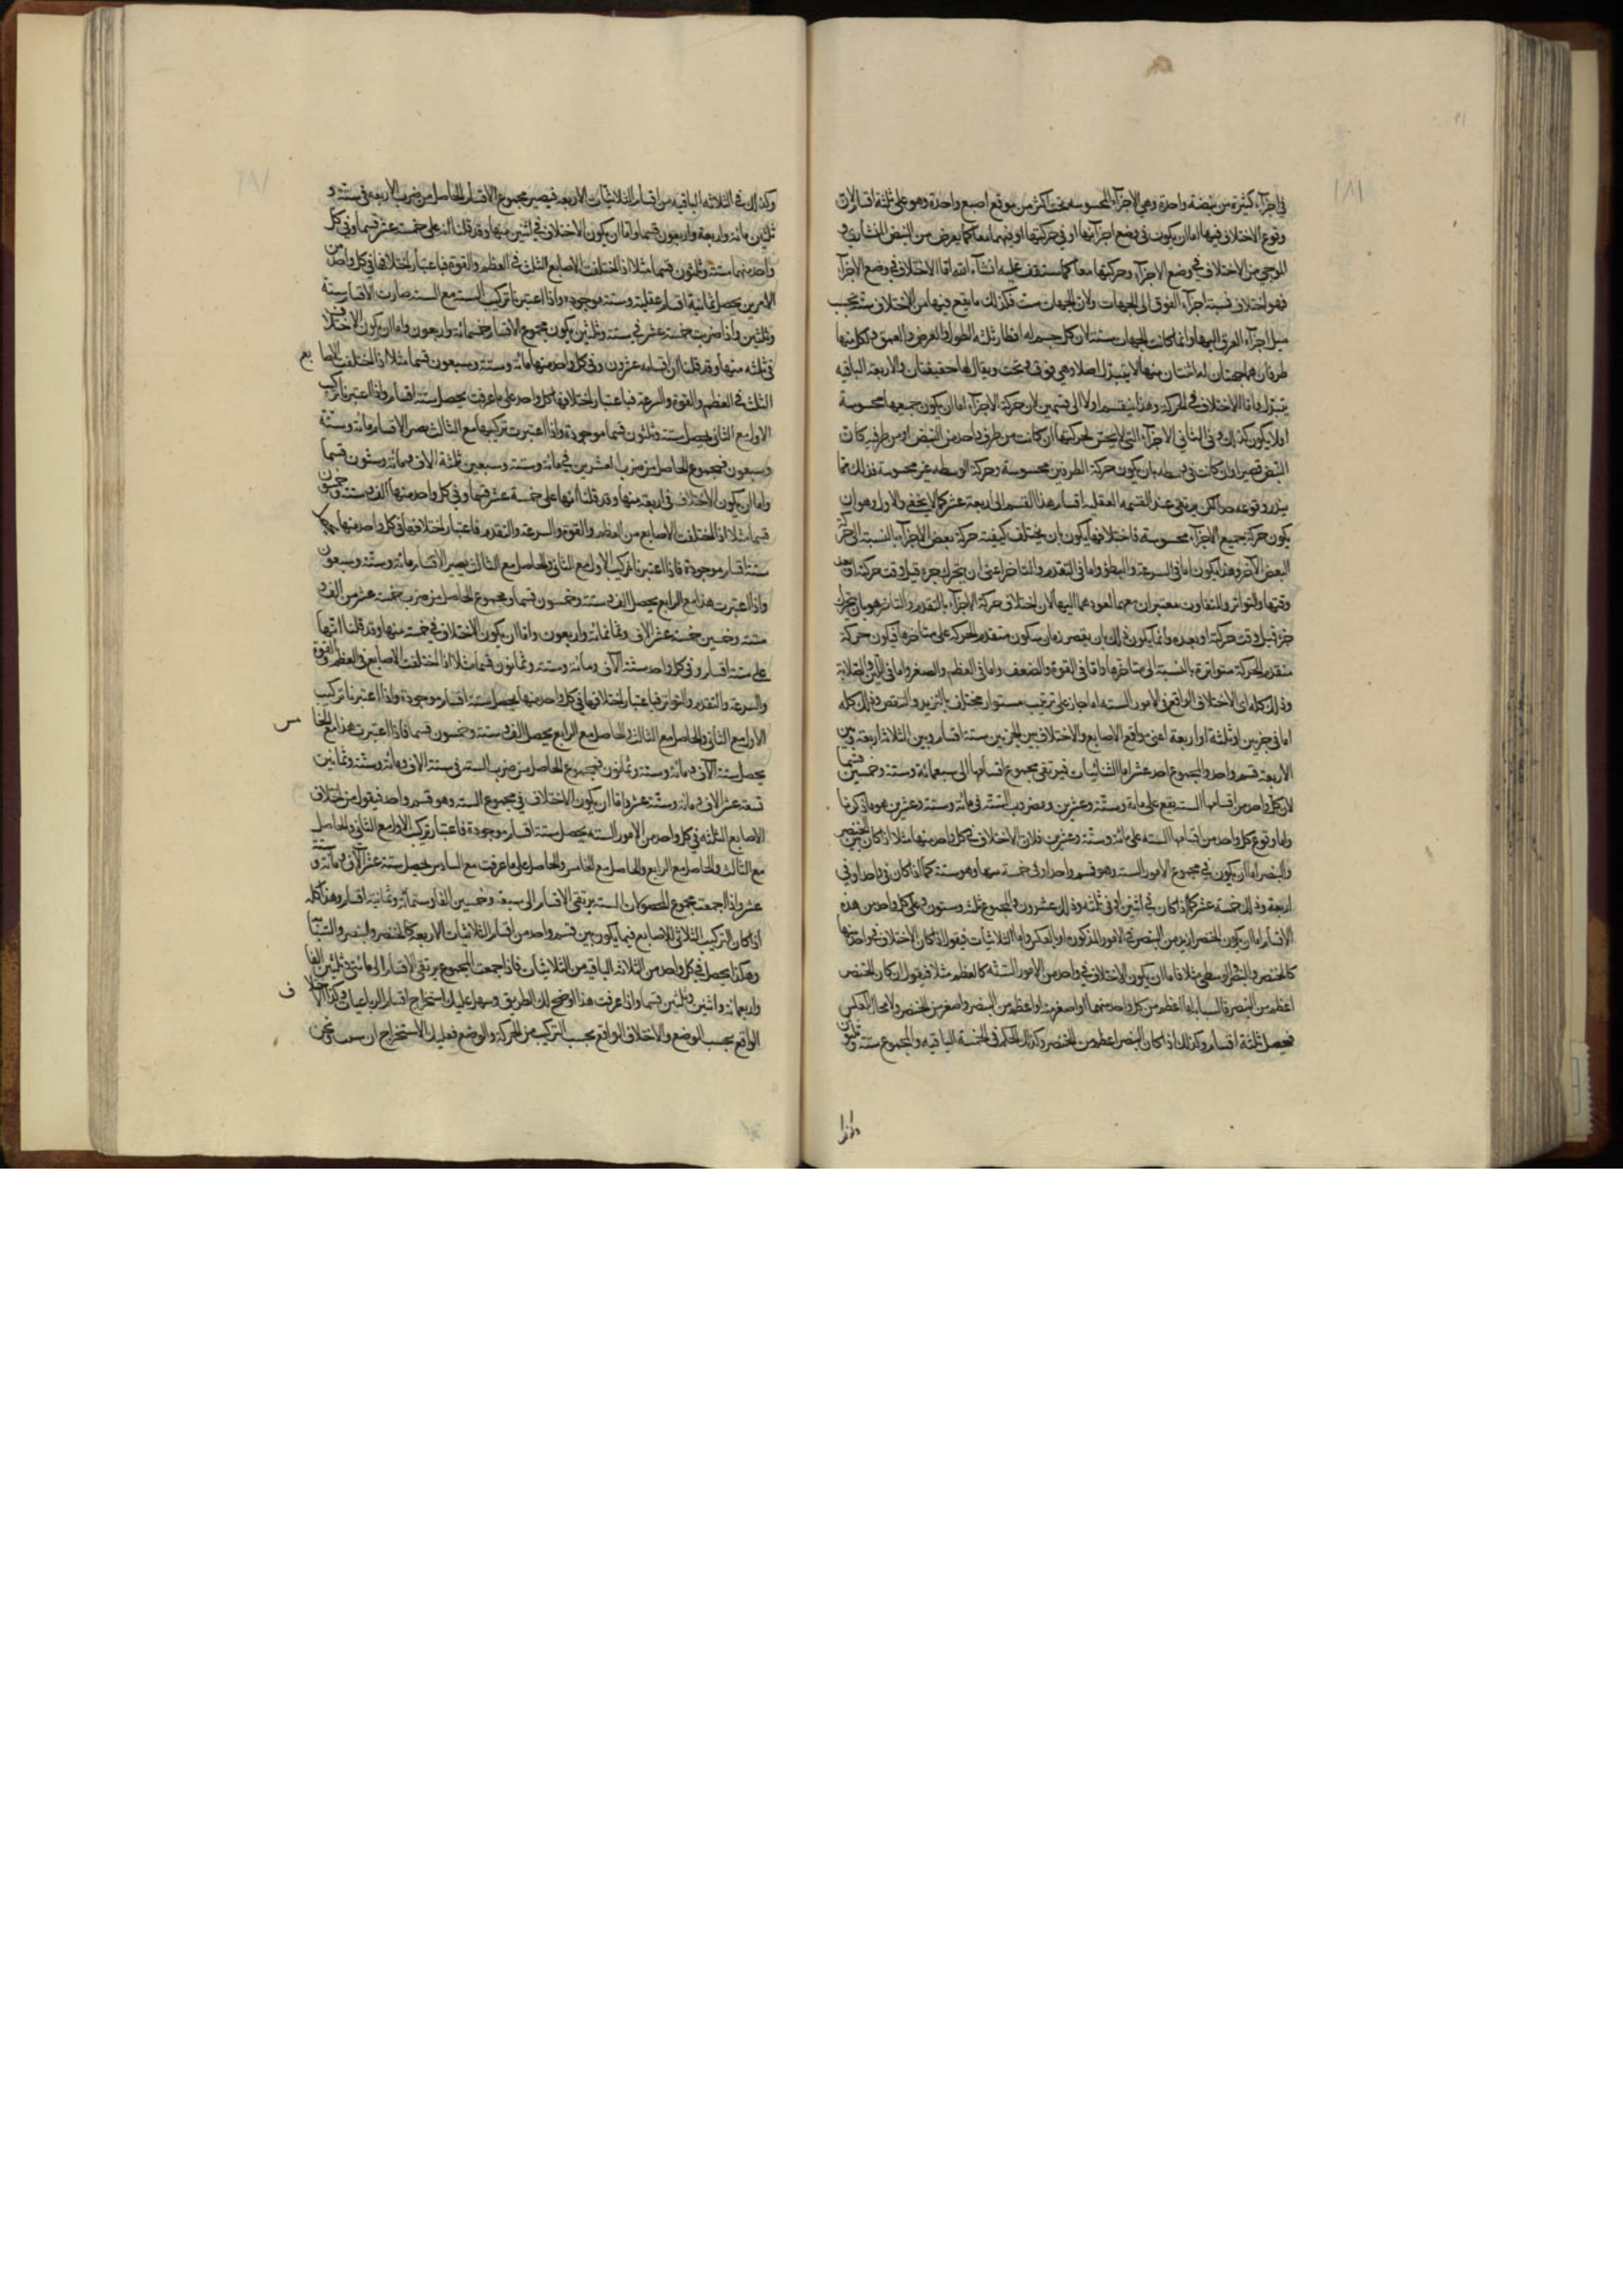 في اجزآء كثيرة من نبضة واحدة وهي الاجزآء المحسوسه تحت اكثر من موقع اصبع واحدة وهو على ثلثة اقسام لان
وقوع الاختلاف فيها اما ان يكون في وضع اجزآئها او في حركتها او فيهما معا كما يعرض من النبض المنشاري و
الموجي من الاختلاف في وضع الاجزآء وحركتها معا كما ستقف عليه انشآء الله اما الاختلاف في وضع الاجزآء
فهو اختلاف نسبة اجزآء العرق الى الجهات ولان الجهات ست فكذلك ما يقع فيها من الاختلاف ستة بحسب
ميل اجزآء العرق اليها وانما كانت الجهات ستة لان كل جسم له اقطار ثلثه الطول والعرض والعمق ولكل منها
طرفان هما جهتان له اثنتان منها لا يتبدل اصلا وهي فوق وتحت ويقال لها حقيقتان والاربعة الباقيه
يتبدل واما الاختلاف في الحركة وهذا ينقسم اولا الى قسمين لان حركة الاجزآء اما ان يكون جميعها محسوسة
او لا يكون كذلك وفي الثاني الاجزآء التي لا يحس بحركتها ان كانت من طرف واحد من النبض او من طرفيه كان
النبض قصيرا وان كانت في وسطه بان يكون حركة الطرفين محسوسة وحركة الوسط غير محسوسة فذلك مما
يندر وقوعه جدا لكن يرتقي عند القسمة العقليه اقسام هذا القسم الى اربعة عشر كما لا يخفى والاول وهو ان
يكون حركة جميع الاجزآء محسوسة فاختلافها يكون بان يختلف كيفية حركة بعض الاجزآء بالنسبة الى حركة
البعض الآخر وهذا يكون اما في السرعة والبطؤ واما في التقدم والتأخر اعني ان يتحرك جزء قبل وقت حركته او بعد
وقتها والتواتر والتفاوت معتبران معهما لعودهما اليها لان اختلاف حركة الاجزآء بالتقدم والتأخر هو بان يتحرك
جزء قبل وقت حركته او بعده وانما يكون ذلك بان يقصر زمان سكون متقدم الحركة على متأخرها فيكون حركة
متقدم الحركة متواترة بالنسبة الى متأخرها واما في القوة والضعف واما في العظم والصغر واما في اللين والصلابة
وذلك كله اي الاختلاف الواقع في الامور الستة اما جار على ترتيب مستو او مختلف بالتزيد والتنقص وذلك كله
اما في جزئين او ثلثة او اربعة اعني مواقع الاصابع والاختلاف بين الجزئين ستة اقسام وبين الثلاثة اربعة وبين
الاربعة قسم واحد والمجموع احد عشر اما الثنائيات فيرتقي مجموع اقسامها الى سبعمائة وستة وخمسين قسما
لان كل واحد من اقسامها الستة يقع على مايه وستة وعشرين ومضروب الستة في مائة وستة وعشرين هو ما ذكرنا
واما وقوع كل واحد من اقسامها الستة على مائة وستة وعشرين فلان الاختلاف في كل واحد منها مثلا اذا كان بين الخنصر
والبنصر اما ان يكون في مجموع الامور الستة وهو قسم واحد او في خمسة منها وهو ستة كما اذا كان في واحد او في
اربعة وذلك خمسة عشر كما اذا كان في اثنين او في ثلثه وذلك عشرون والمجموع ثلث وستون وعلى كل واحد من هذه
الاقسام اما ان يكون الخنصر ازيد من البنصر في الامور المذكوره او بالعكس واما الثلاثيات فيقول اذا كان الاختلاف في واحد منها
كالخنصر والبنصر والوسطى مثلا فاما ان يكون الاختلاف في واحد من الامور الستة كالعظم مثلا فيقول ان كان الخنصر
اعظم من البنصر فالسبابة اما اعظم من كل واحد منهما او اصغر منه او اعظم من البنصر واصغر من الخنصر ولا مجال للعكس
فيحصل ثلثة اقسام وكذلك اذا كان البنصر اعظم من الخنصر وكذلك الحكم في الخمسة الباقيه والمجموع ستة وثلثون
وكذلك في الثلاثة الباقيه من اقسام الثلاثيات الاربعه فيصير مجموع الاقسام الحاصل من ضرب الاربعه في ستة و
ثلثين مائة واربعة واربعون قسما واما ان يكون الاختلاف في اثنين منها وقد قلنا انه على خمسة عشر قسما وفي كل
واحد منهما ستة وثلثون قسما مثلا اذا اختلفت الاصابع الثلث في العظم والقوة فباعتبار اختلافها في كل واحد من
الامرين يحصل ثمانية اقسام عقلية وستة موجوده واذا اعتبرنا تركيب الستة مع الستة صارت الاقسام ستة
وثلثين واذا ضربت خمسة عشر في ستة وثلثين يكون مجموع الاقسام خمسمائة واربعون واما ان يكون الاختلاف
في ثلثه منها وقد قلنا ان اقسامه عشرون وفي كل واحد منها مائة وستة وسبعون قسما مثلا اذا اختلفت الاصابع
الثلث في العظم والقوة والسرعة فباعتبار اختلافها كل واحد على ما عرفت يحصل ستة اقسام واذا اعتبرنا تركيب
الاول مع الثاني يحصل ستة وثلثون قسما موجودة واذا اعتبرت تركيبها مع الثالث يصير الاقسام مائة وستة
وسبعون فمجموع الحاصل من ضرب العشرين في مائة وستة وسبعين ثلثة الاف ومائة وستون قسما
واما ان يكون الاختلاف في اربعة منها وقد قلنا انها على خمسة عشر قسما وفي كل واحد منها الف وستة وخمسون
قسما مثلا اذا اختلفت الاصابع من العظم والقوة والسرعة والتقدم فباعتبار اختلافها في كل واحد منها يحصل
ستة اقسام موجودة فاذا اعتبرنا تركيب الاول مع الثاني والحاصل مع الثالث يصير الاقسام مائة وستة وسبعون
واذا اعتبرت هذا مع الرابع يحصل الف وستة وخمسون قسما ومجموع الحاصل من ضرب خمسة عشر من الف و
ستة وخمسين خمسة عشر الاف وثمانمائة واربعون واما ان يكون الاختلاف في خمسة منها وقد قلنا انها
على ستة اقسام وفي كل واحد ستة الآف ومائة وستة وثمانون قسما مثلا اذا اختلفت الاصابع في العظم والقوة
والسرعة والتقدم والتواتر فباعتبار اختلافها في كل واحد منها يحصل ستة اقسام موجودة واذا اعتبرنا تركيب
الاول مع الثاني والحاصل مع الثالث والحاصل مع الرابع يحصل الف وستة وخمسون قسما فاذا اعتبرت هذا مع الخامس
يحصل ستة الآف ومائة وستة وثمانون فمجموع الحاصل من ضرب الستة في ستة الاف ومائة وستة وثمانين
تسعة عشر الاف ومائة وستة عشر واما ان يكون الاختلاف في مجموع الستة وهو قسم واحد فيقول من اختلاف
الاصابع الثلثه في كل واحد من الامور الستة يحصل ستة اقسام موجودة فباعتبار تركيب الاول مع الثاني والحاصل
مع الثالث والحاصل مع الرابع والحاصل مع الخامس والحاصل على ما عرفت مع السادس يحصل ستة عشر الآف ومائة وستة
عشر واذا جمعت مجموع الستة يرتقي الاقسام الى سبعة وخمسين الفا وستمائة وثمانية اقسام وهذا كله
اذا كان التركيب الثلاثي للاصابع فيما يكون بين قسم واحد من اقسام الثلاثيات الاربعة كالخنصر والبنصر والسبابة
وهكذا يحصل في كل واحد من الثلاثة الباقية من الثلاثيات فاذا جمعت المجموع يرتقي الاقسام الى مائتي وثلثين الفا
واربعمائة واثنين وثلثين قسما واذا عرفت هذا اوضح لك الطريق وسهل عليك استخراج اقسام الرباعيات وكذا الاختلاف
الواقع بحسب الوضع والاختلاف الواقع بحسب التركيب من الحركة والوضع فعليك الاستخراج ان